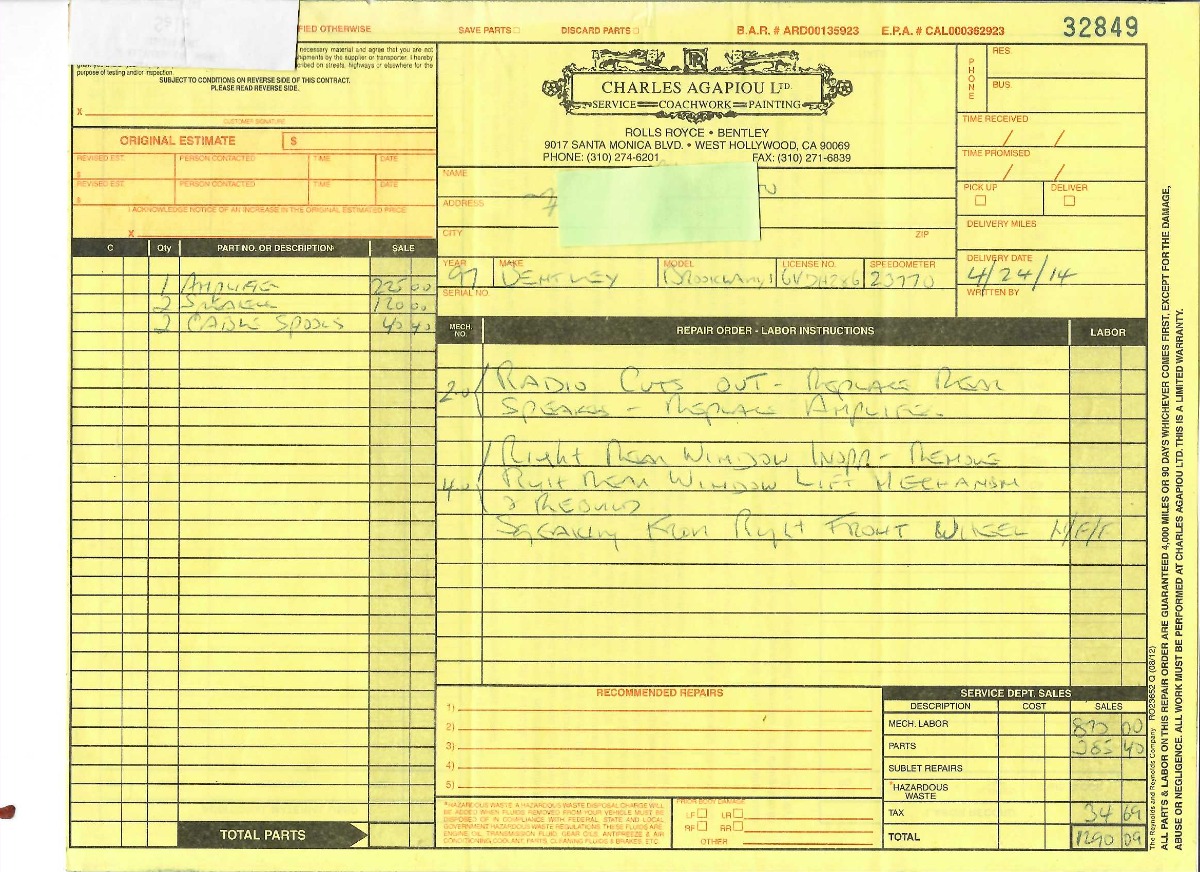 FIED OTHERWISE
SAVE PARTS □ DISCARD PARTS □ B.A.R. # ARD00135923 E.P.A. # CAL000362923 32849
necessary material and agree that you are not
hipments by the supplier or transporter. I hereby
cribed on streets, highways or elsewhere for the
purpose of testing and/or inspection.
SUBJECT TO CONDITIONS ON REVERSE SIDE OF THIS CONTRACT.
PLEASE READ REVERSE SIDE.
X
CUSTOMER SIGNATURE
ORIGINAL ESTIMATE $
REVISED EST. PERSON CONTACTED TIME DATE
$
REVISED EST. PERSON CONTACTED TIME DATE
$
I ACKNOWLEDGE NOTICE OF AN INCREASE IN THE ORIGINAL ESTIMATED PRICE
X
RR
CHARLES AGAPIOU LTD.
SERVICE COACHWORK PAINTING
ROLLS ROYCE • BENTLEY
9017 SANTA MONICA BLVD. • WEST HOLLYWOOD, CA 90069
PHONE: (310) 274-6201 FAX: (310) 271-6839
NAME
ADDRESS
CITY ZIP
PHONE
RES.
BUS.
TIME RECEIVED
/ /
TIME PROMISED
/ /
PICK UP □ DELIVER □
DELIVERY MILES
DELIVERY DATE
4/24/14
WRITTEN BY
YEAR MAKE MODEL LICENSE NO. SPEEDOMETER
97 BENTLEY BROOKLANDS 23770
SERIAL NO.
C Qty PART NO. OR DESCRIPTION SALE
1 AMPLIFIER 225 00
2 SPEAKER 120 00
2 CABLE SPOOLS 40 40
TOTAL PARTS
MECH. NO. REPAIR ORDER - LABOR INSTRUCTIONS LABOR
2.0 RADIO CUTS OUT - REPLACE REAR
SPEAKER - REPLACE AMPLIFIER
RIGHT REAR WINDOW INOPR - REMOVE
4.0 RIGHT REAR WINDOW LIFT MECHANISM
& REBUILD
SQEAKING FROM RIGHT FRONT WHEEL N/F/F
RECOMMENDED REPAIRS
1)
2)
3)
4)
5)
*HAZARDOUS WASTE: A HAZARDOUS WASTE DISPOSAL CHARGE WILL
BE ADDED WHEN FLUIDS REMOVED FROM YOUR VEHICLE MUST BE
DISPOSED OF IN COMPLIANCE WITH FEDERAL, STATE AND LOCAL
GOVERNMENT HAZARDOUS WASTE REGULATIONS. THESE FLUIDS ARE:
ENGINE OIL, TRANSMISSION FLUID, GEAR OILS, ANTIFREEZE & AIR
CONDITIONING COOLANT, PARTS, CLEANING FLUIDS & BRAKES, ETC.
PRIOR BODY DAMAGE
LF □ LR □
RF □ RR □
OTHER
SERVICE DEPT. SALES
DESCRIPTION COST SALES
MECH. LABOR 870 00
PARTS 385 40
SUBLET REPAIRS
*HAZARDOUS WASTE
TAX 34 69
TOTAL 1290 09
The Reynolds and Reynolds Company RO23652 Q (08/12)
ALL PARTS & LABOR ON THIS REPAIR ORDER ARE GUARANTEED 4,000 MILES OR 90 DAYS WHICHEVER COMES FIRST. EXCEPT FOR THE DAMAGE,
ABUSE OR NEGLIGENCE. ALL WORK MUST BE PERFORMED AT CHARLES AGAPIOU LTD. THIS IS A LIMITED WARRANTY.